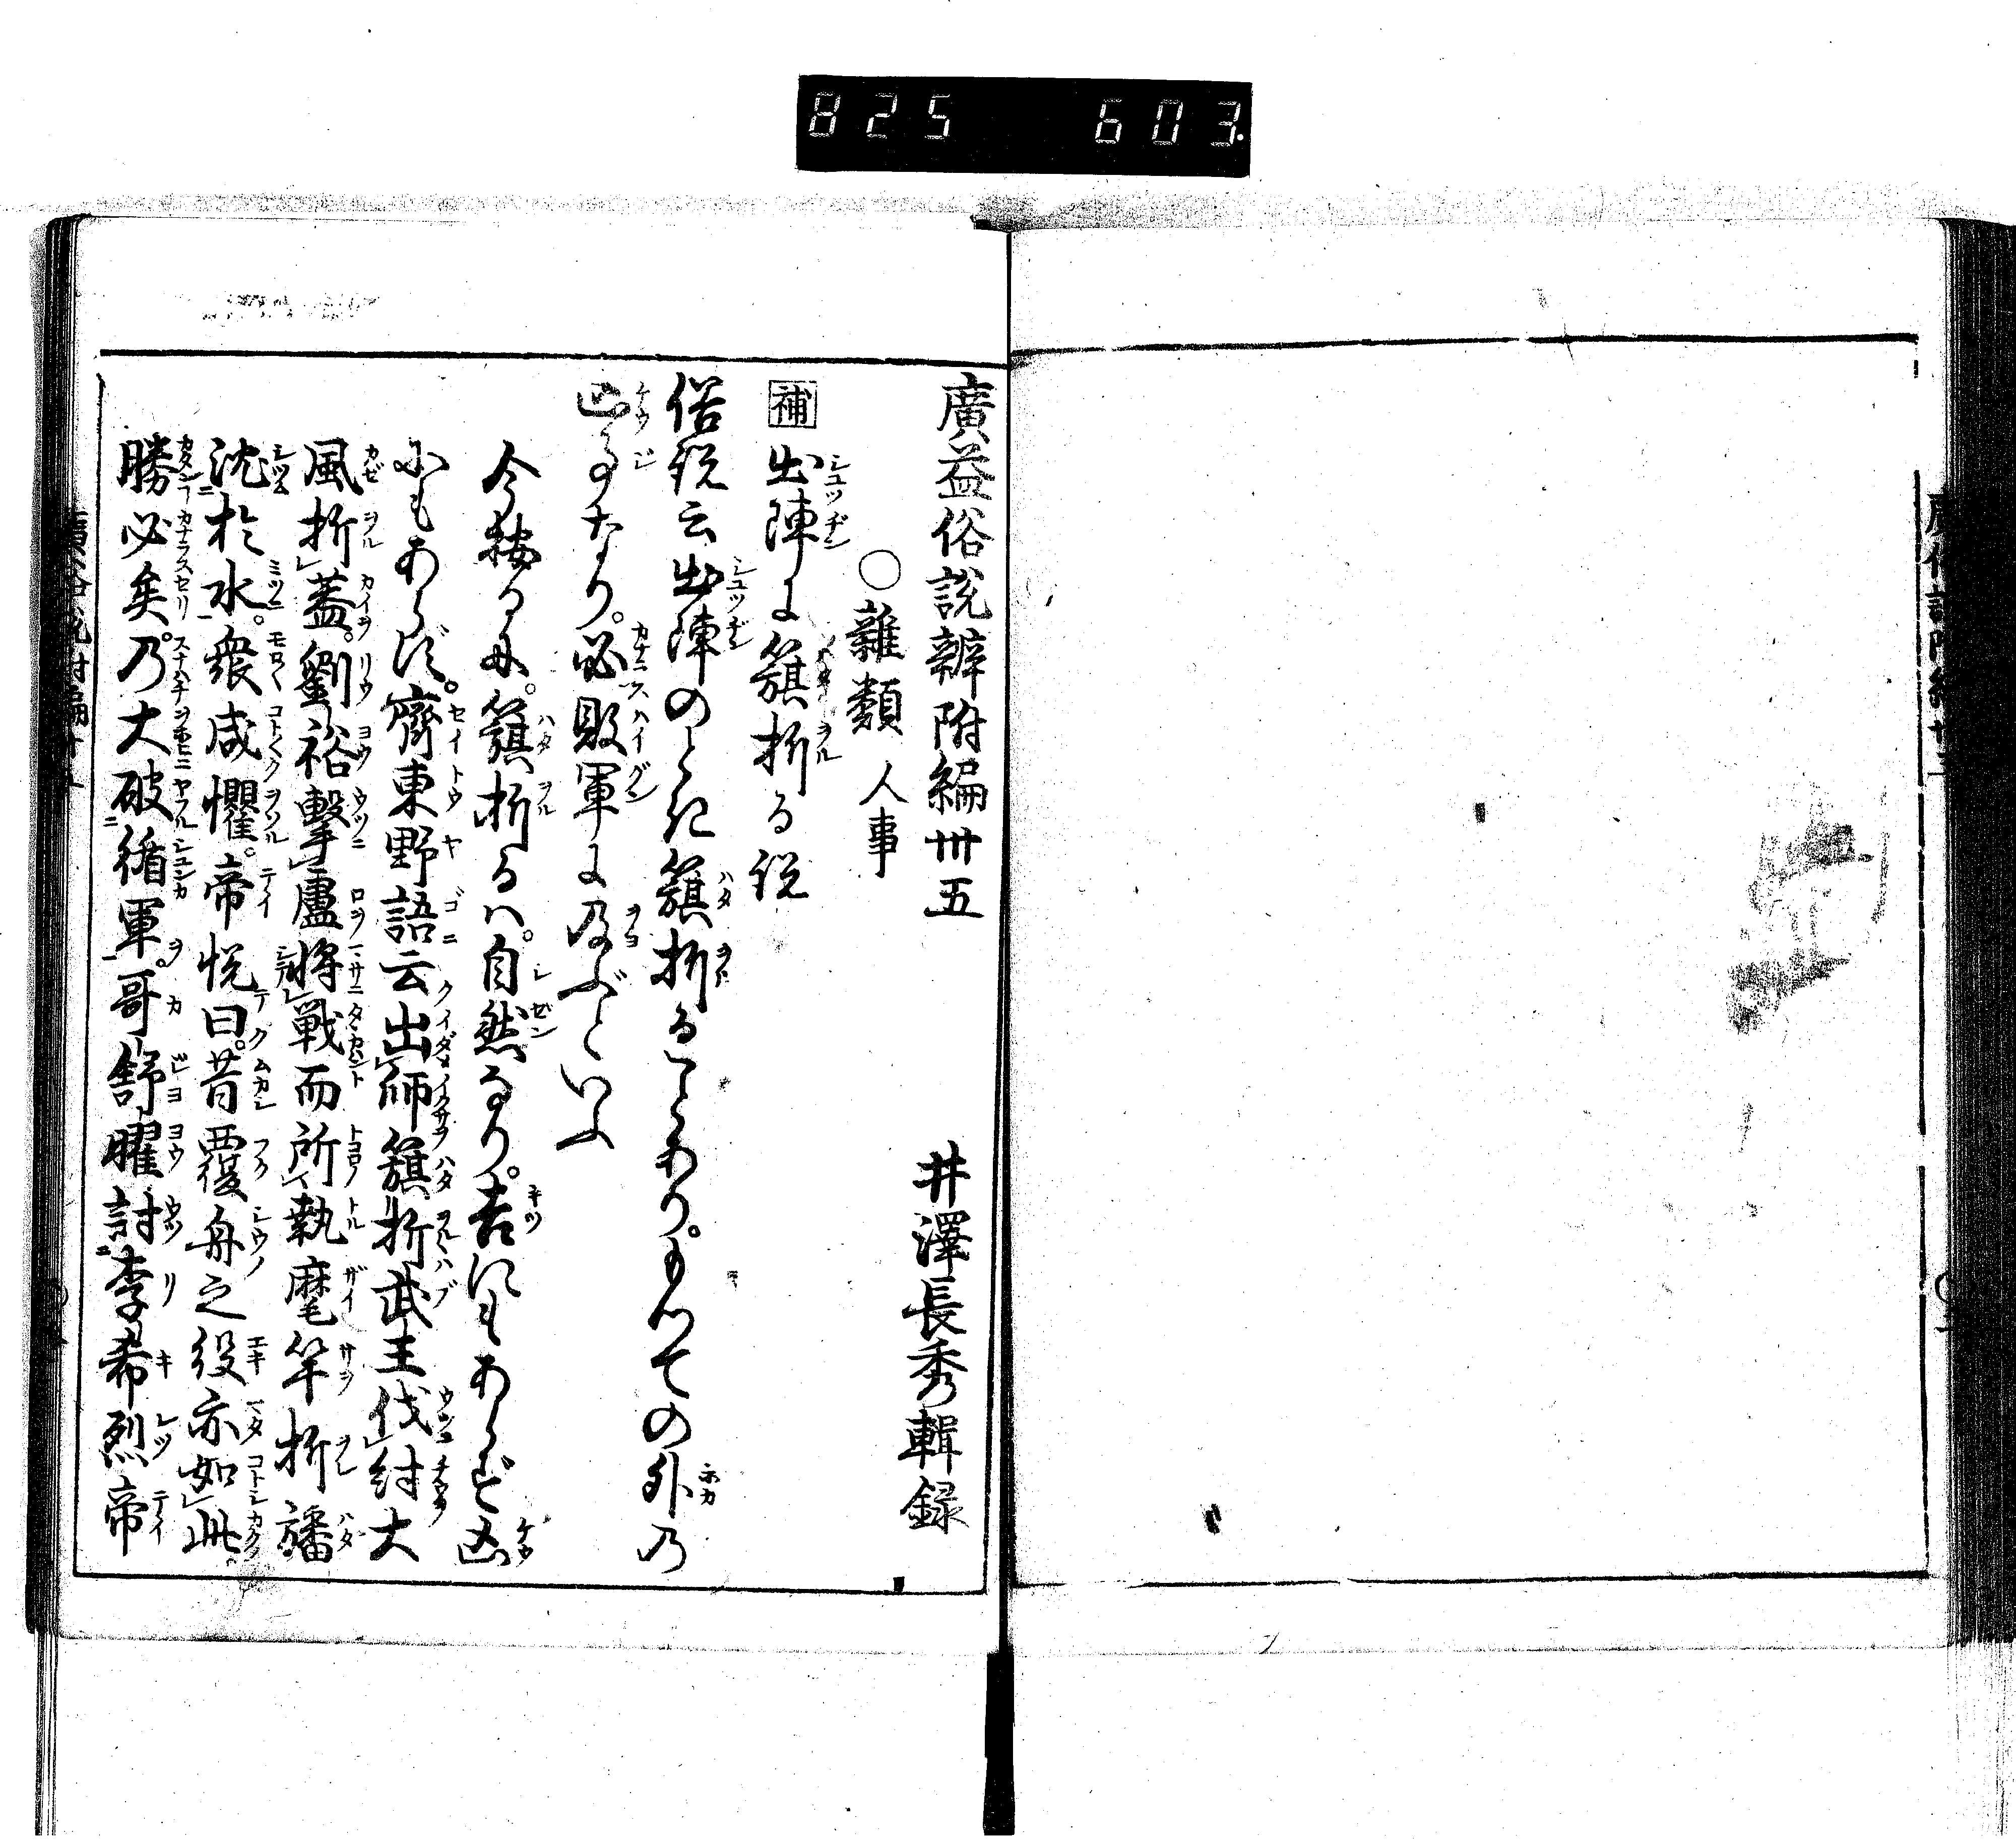 825 603
廣益俗説辨附編卅五　井澤長秀輯録
○雜類　人事
補 出陣に籏折る説
俗説云出陣のとき籏折ることあり。もつての外乃
凶事なり。必敗軍に及ぶといふ
今按るに。籏折るハ。自然なり。吉にもあらず凶
にもあらず。齊東野語云出師籏折武王伐紂大
風折蓋。劉裕擊盧將戰而所執麾竿折旛
沈於水。衆咸懼。帝悦曰。昔覆舟之役亦如此。
勝必矣。乃大破循軍。哥舒曜討李希烈帝